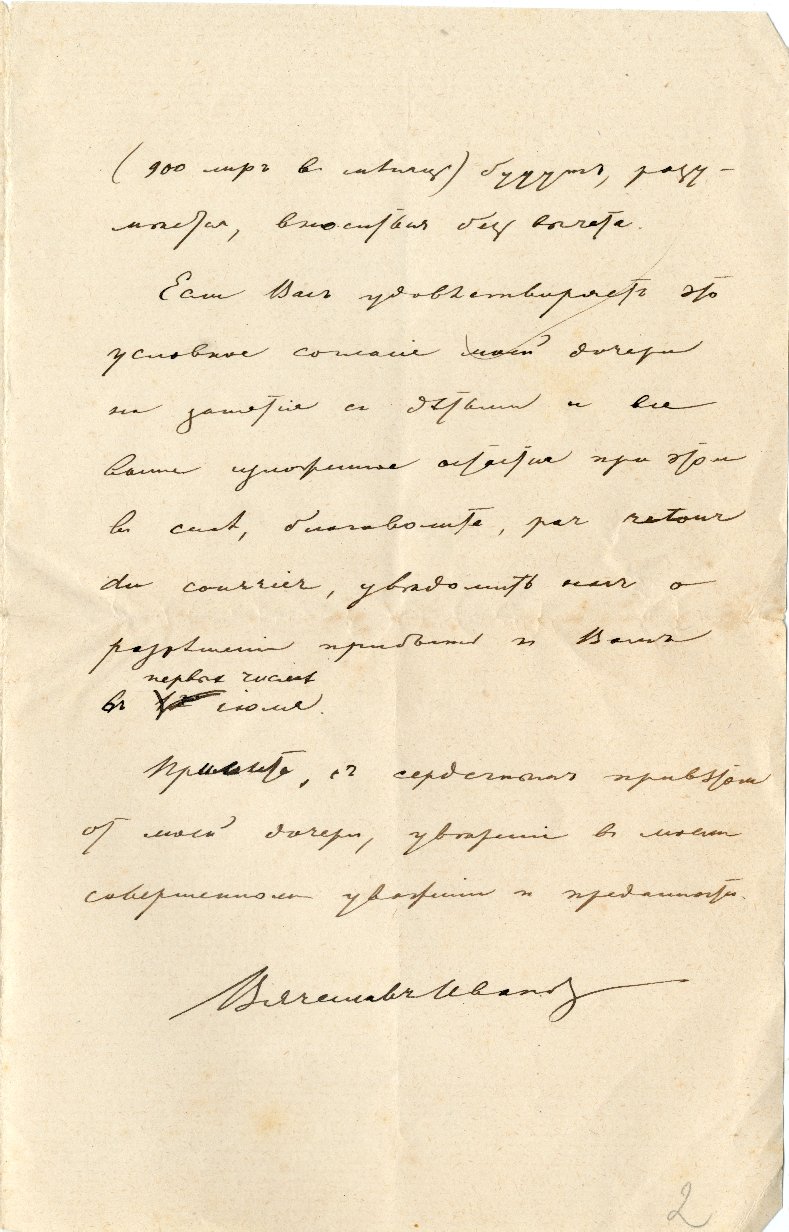 (900 лиръ въ мѣсяцъ) будутъ, разу-
мѣется, вноситься безъ вычета.
Если Васъ удовлетворяетъ это
условное согласіе моей дочери
на занятія съ дѣтьми и все
выше изложенное остается при этомъ
въ силѣ, благоволите, par retour
du courrier, увѣдомить насъ о
разрѣшеніи прибыть къ Вамъ
первыхъ числахъ
въ іюля.
Примите, съ сердечнымъ привѣтомъ
отъ моей дочери, увѣреніе въ моемъ
совершенномъ уваженіи и преданности.
Вячеславъ Ивановъ
2